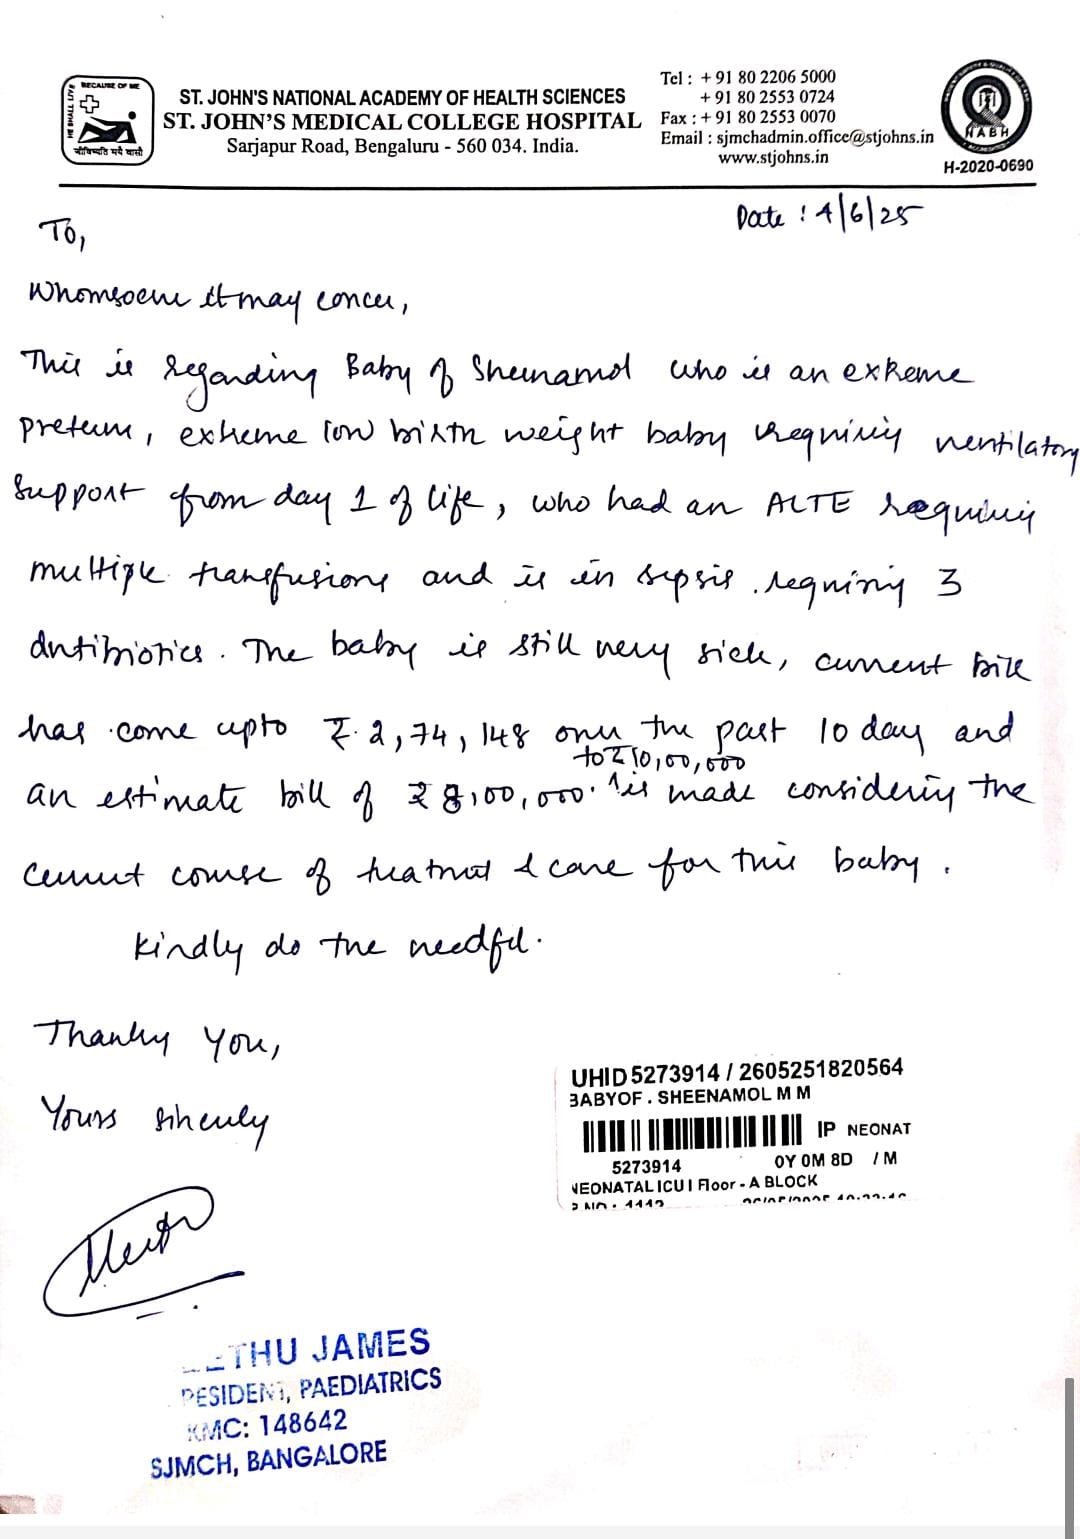 BECAUSE OF ME
HE SHALL LIVE
जीविष्यति मयै वासौ
ST. JOHN'S NATIONAL ACADEMY OF HEALTH SCIENCES
ST. JOHN'S MEDICAL COLLEGE HOSPITAL
Sarjapur Road, Bengaluru - 560 034. India.
Tel : + 91 80 2206 5000
+ 91 80 2553 0724
Fax : + 91 80 2553 0070
Email : sjmchadmin.office@stjohns.in
www.stjohns.in
NABH
H-2020-0690
Date : 4/6/25
To,
Whomsoever it may concern,
This is regarding Baby of Sheenamol who is an extreme
preterm, extreme low birth weight baby requiring ventilatory
support from day 1 of life, who had an ALTE requiring
multiple transfusions and is in sepsis requiring 3
antibiotics. The baby is still very sick, current bill
has come upto ₹ 2,74,148 over the past 10 day and
to ₹ 10,00,000
an estimate bill of ₹ 8,00,000 is made considering the
current course of treatment & care for this baby.
Kindly do the needful.
Thanking You,
Yours sincerely
UHID 5273914 / 2605251820564
BABYOF . SHEENAMOL M M
IP NEONAT
5273914 0Y 0M 8D / M
NEONATAL ICU I Floor - A BLOCK
THU JAMES
RESIDENT, PAEDIATRICS
KMC: 148642
SJMCH, BANGALORE